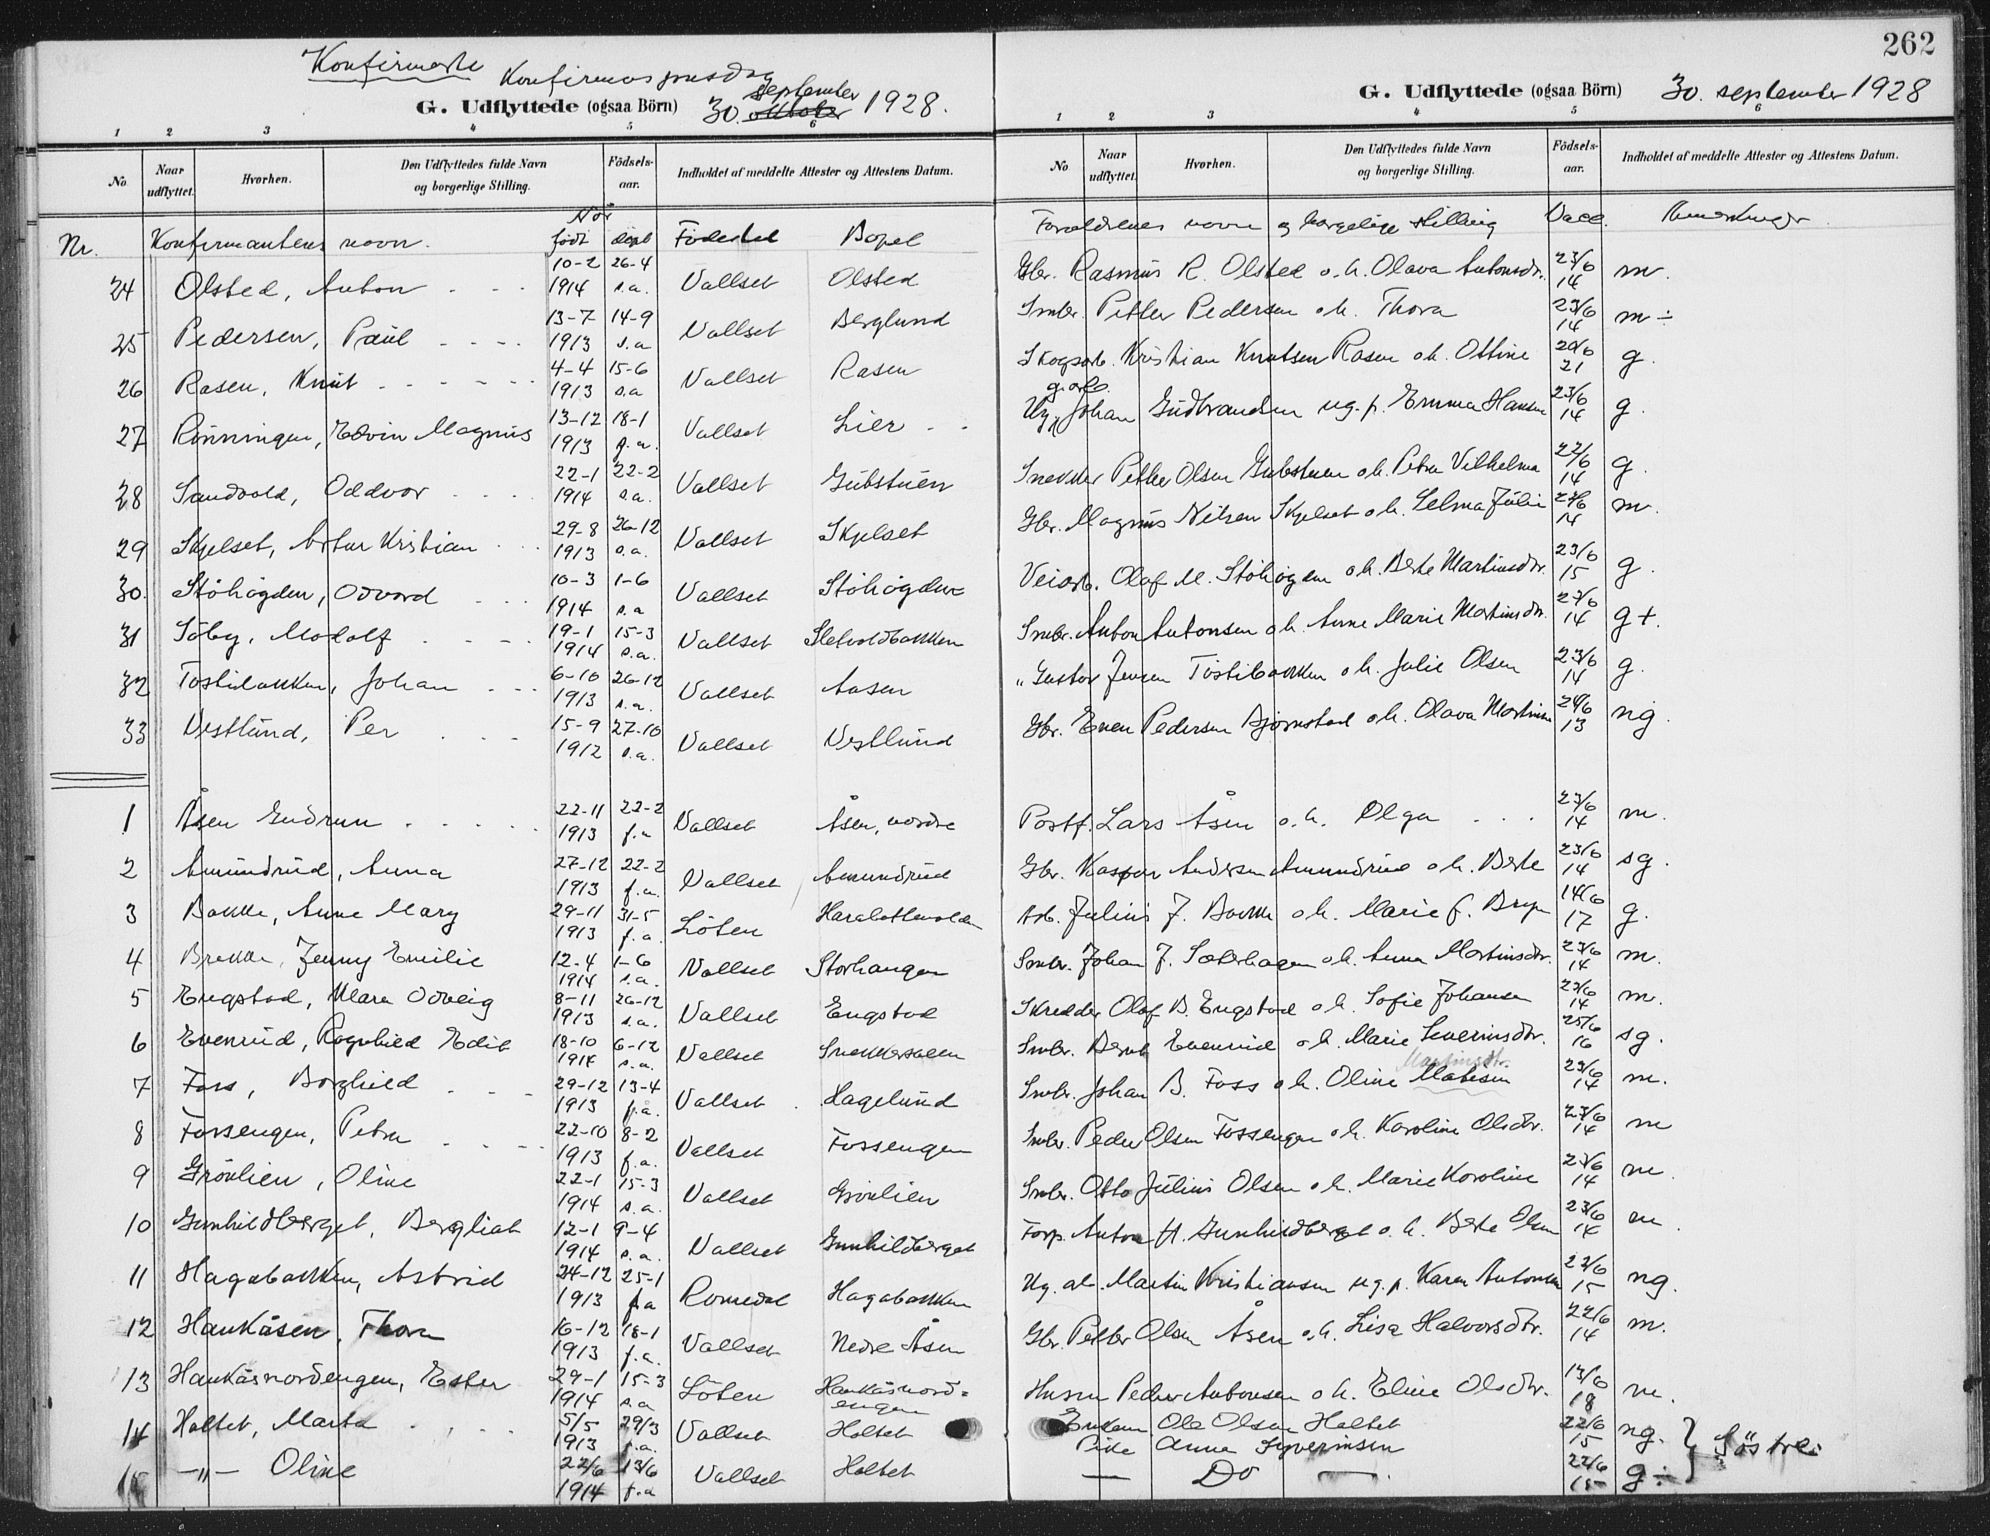 262
Konfirmerte Konfirmasjonsdag
G. Udflyttede (ogsaa Börn) 30. september oktober 1928.
G. Udflyttede (ogsaa Börn) 30. september 1928
1 2 3 4 5 6
1 2 3 4 5 6
No Naar udflyttet. Hvorhen. Den Udflyttedes fulde Navn og borgerlige Stilling. Födsels-aar. Indholdet af meddelte Attester og Attestens Datum.
No Naar udflyttet. Hvorhen. Den Udflyttedes fulde Navn og borgerlige Stilling. Födsels-aar. Indholdet af meddelte Attester og Attestens Datum.
Nr. Konfirmantens navn. Når født døpt Födested Bopel Foreldrenes navn og borgelige stilling Vacc. Anmerkninger
24 Olsted, Anton 10-2 1914 26-4 s.a. Vallset Olsted Gbr. Rasmus R. Olsted o.h. Olava Antonsdtr. 23/6 14 m.
25 Pedersen, Paul 13-7 1913 14-9 s.a Vallset Berglund Smbr. Petter Pedersen o.h. Thora 23/6 14 m ÷
26 Rasen, Knut 4-4 1913 15-6 s.a Vallset Rasen Skogsarb. Kristian Knutsen Rasen o.h. Ottine 20/6 21 g.
27 Rönningen, Edvin Magnus 13-12 1913 18-1 f.a. Vallset Lier Ug. garb. Johan Gudbrandsen ug.p. Emma Hansen 23/6 14 g.
28 Sandvold, Oddvar 22-1 1914 22-2 s.a. Vallset Gubstuen Snekker Petter Olsen Gubstuen o.h. Petra Vilhelma 22/6 14 g.
29 Skjelset, Artur Kristian 29-8 1913 26-12 s.a. Vallset Skjelset Gbr. Magnus Nilsen Skjelset o.h. Selma Julie 23/6 14 m.
30. Stöhögden, Odvard 10-3 1914 1-6 s.a Vallset Stöhögden Veiarb. Olaf M. Stöhögden o.h. Berte Martinsdtr. 23/6 15 g.
31 Söby, Modolf 19-1 1914 15-3 s.a. Vallset Sletvoldbakken Smbr. Anton Antonsen o.h. Anne Marie Martinsdtr. 23/6 14 g+.
32 Tostibakken, Johan 6-10 1913 26-12 s.a. Vallset Aasen " Gustav Jensen Tostibakken o.h. Julie Olsen 23/6 14 g.
33 Vestlund, Per 15-9 1912 27-10 s.a. Vallset Vestlund Gbr. Even Pedersen Bjørnstad o.h. Olava 24/6 13 ng.
1 Åsen Gudrun 22-11 1913 22-2 f.a Vallset Åsen, nordre Postf. Lars Åsen o.h. Olga 23/6 14 m.
2 Amundrud, Anna 27-12 1913 22-2 f.a. Vallset Amundrud Gbr. Kaspar Andersen Amundrud o.h. Berte 23/6 14 sg.
3 Bakke, Anne Mary 29-11 1913 31-5 f.a. Löten Arb. Julius J. Bakke o.h. Marie f. 14/6 17 g.
4 Brekke, Jenny Emilie 12-4 1914 1-6 s.a. Vallset Storhaugen Smbr. Johan J. Sæterhagen o.h. Anna Martinsdtr. 23/6 14 m.
5 Engstad, Klara Odveig 8-11 1913 26-12 s.a. Vallset Engstad Skredder Olaf B. Engstad o.h. Sofie Johansen 23/6 14 m.
6 Evenrud, Ragnhild Edit 18-10 1914 6-12 s.a. Vallset Snekkersveen Smbr. Bernt Evenrud o.h. Marie Severinsdtr. 25/6 16 sg.
7 Foss, Borghild 29-12 1913 13-4 f.å. Vallset Hagelund Smbr. Johan B. Foss o.h. Oline Madsen Martinsdtr. 23/6 14 m.
8 Fossengen, Petra 22-10 1913 8-2 f.a. Vallset Fossengen Smbr. Peder Olsen Fossengen o.h. Karoline Olsdtr. 23/6 14 m
9 Grönlien, Oline 22-1 1914 15-3 s.a. Vallset Grönlien Smbr. Otto Julius Olsen o.h. Marie Karoline 23/6 14 m.
10 Gunhildberget, Bergliot 12-1 1914 9-4 s.a. Vallset Gunhildberget Forp. Anton H. Gunhildberget o.h. Berte Olsen 23/6 14 m.
11 Hagabakken, Astrid 24-12 1913 25-1 f.a Romedal Hagabakken Ug. ab. Martin Kristiansen ug.p. Karen Antonsen 23/6 15 ng.
12 Haukåsen, Thora 16-12 1913 18-1 f.a. Vallset Nedre Åsen Gbr. Petter Olsen Åsen o.h. Lisa Halvorsdtr. 22/6 14 m.
13 Haukåsnordengen, Ester 29-1 1914 15-3 s.a Löten Haukåsnord=engen Husm Peder Antonsen o.h. Eline Olsdtr. 13/6 18 m.
14 Holtet, Marta 5/5 1913 29/3 f.a. Vallset Holtet Enkem. Ole Olsen Holtet Pike Anna Syverinsen 22/6 15 ng. } Söstre
15 —"— Oline 22/6 1914 13/6 f.a Vallset Holtet — Do — 22/6 15 g ÷